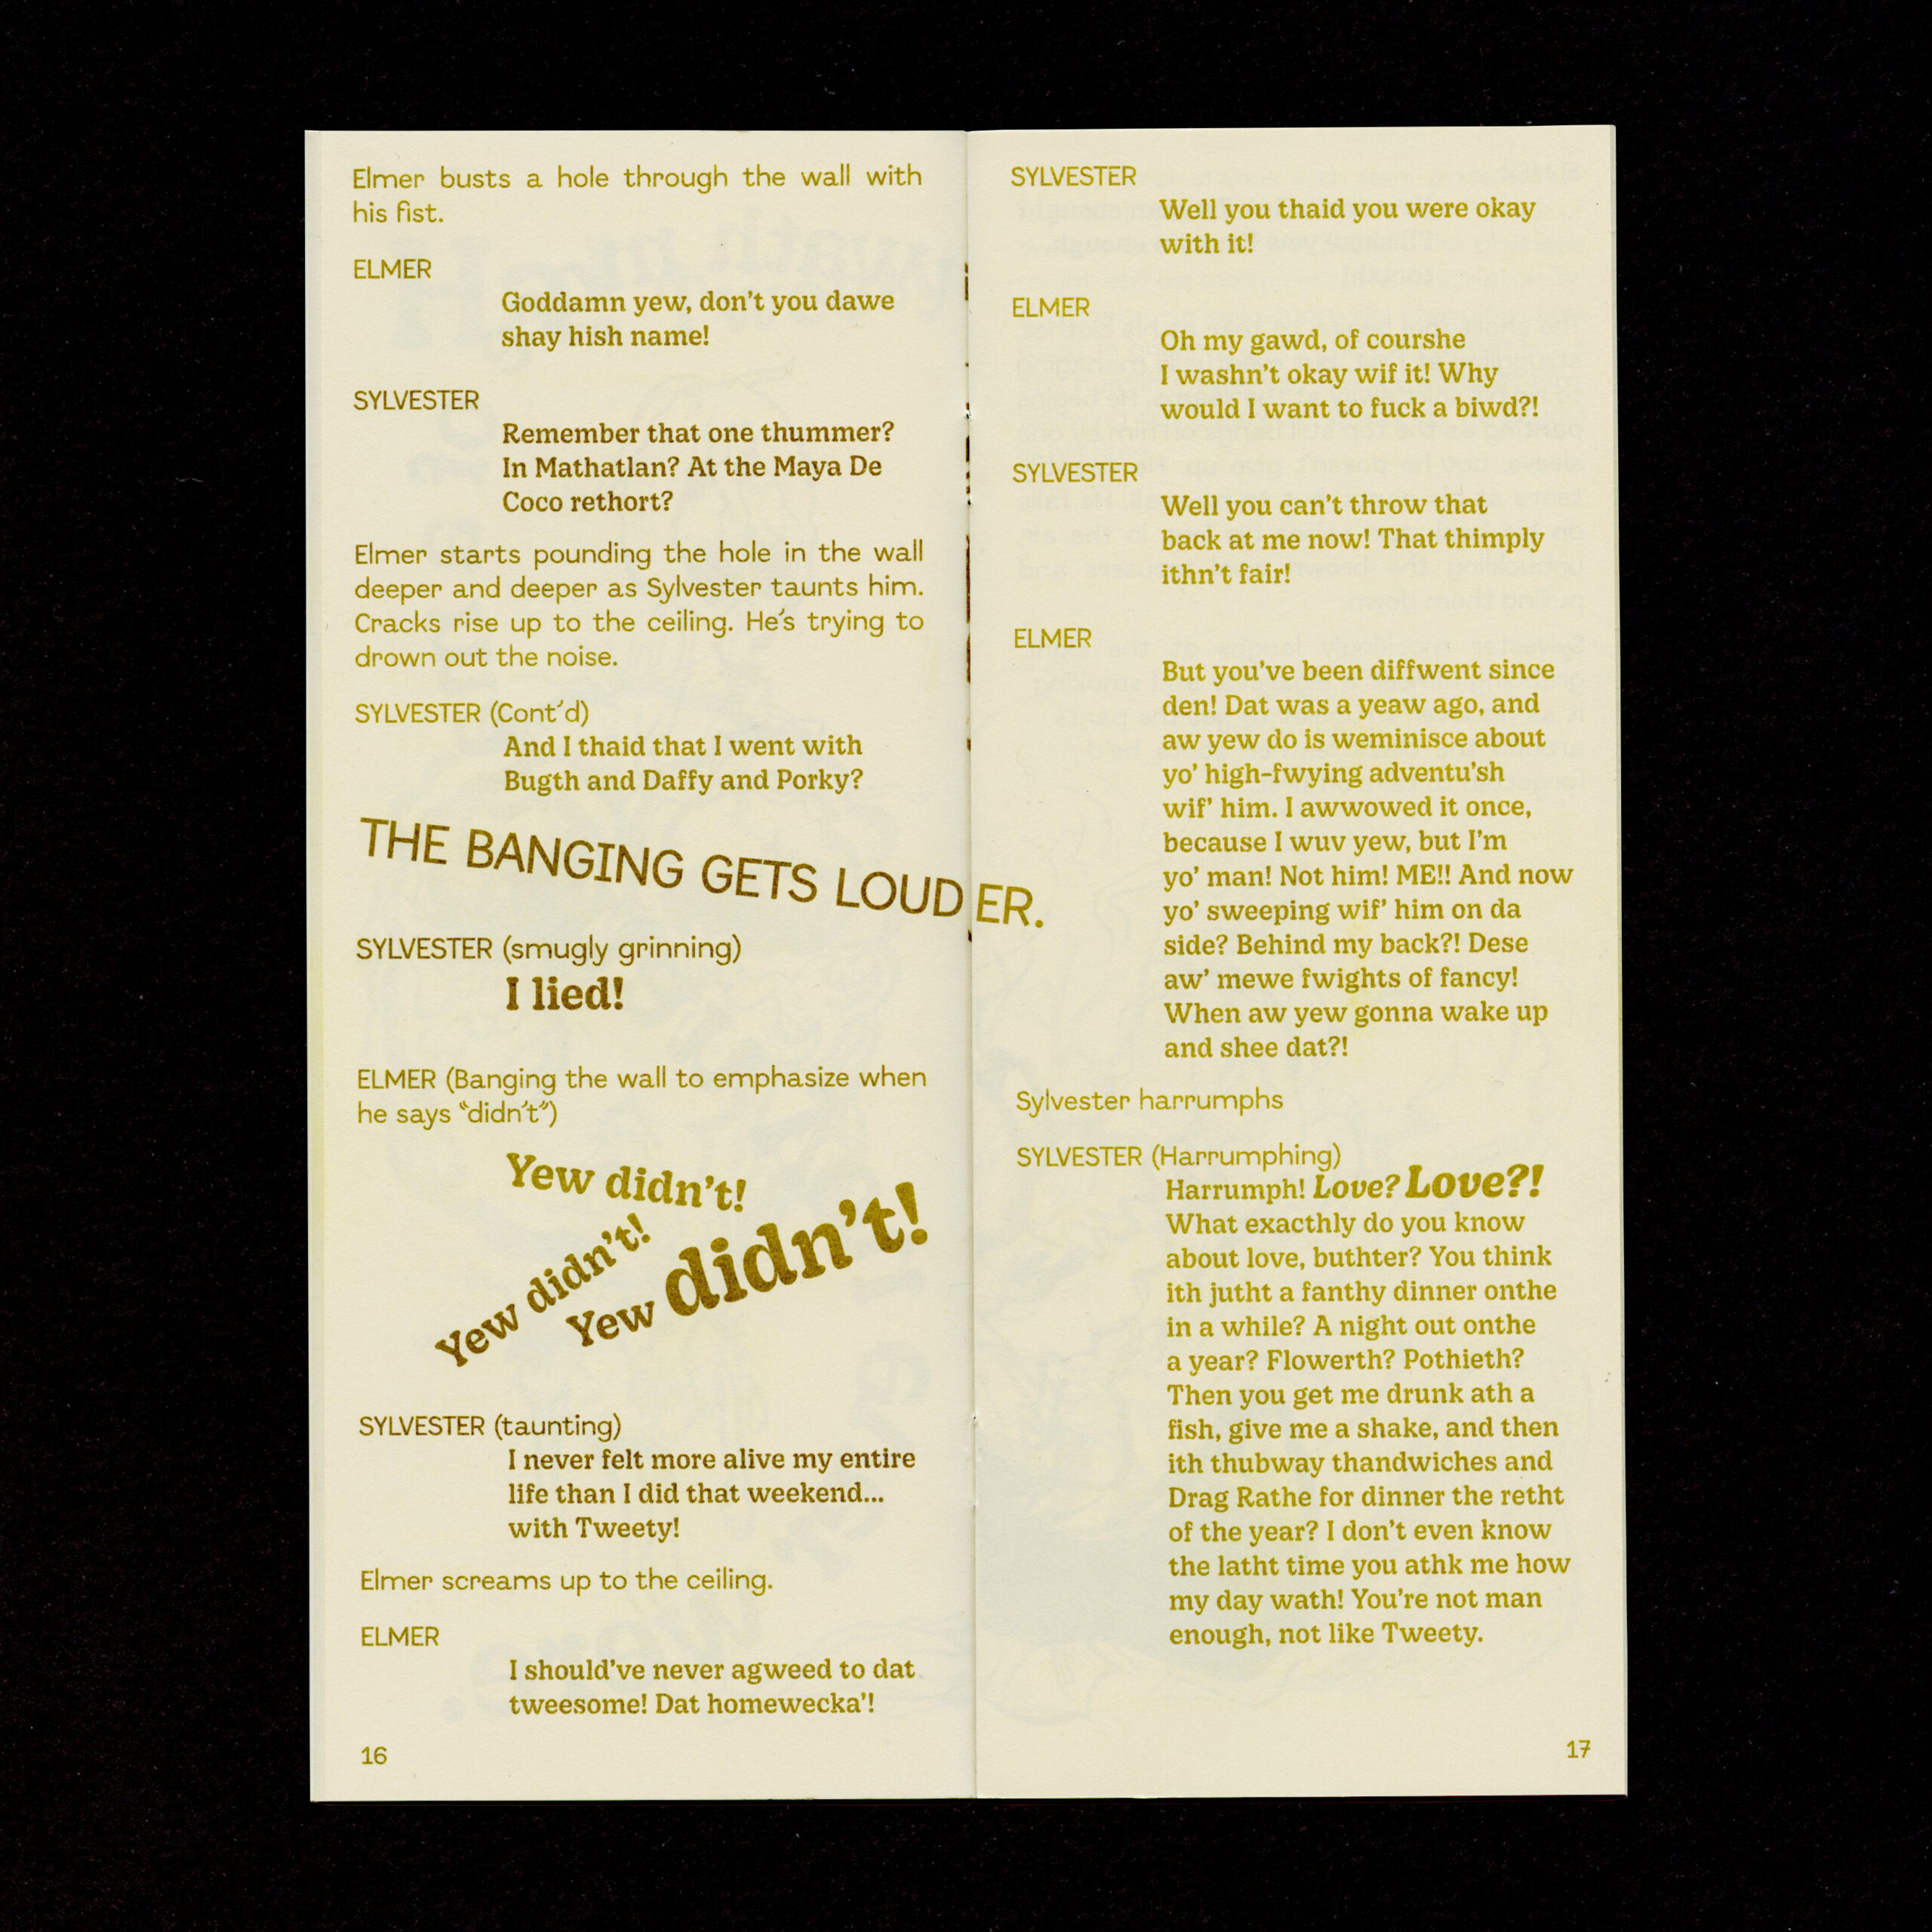 Elmer busts a hole through the wall with
his fist.
ELMER
Goddamn yew, don't you dawe
shay hish name!
SYLVESTER
Remember that one thummer?
In Mathatlan? At the Maya De
Coco rethort?
Elmer starts pounding the hole in the wall
deeper and deeper as Sylvester taunts him.
Cracks rise up to the ceiling. He's trying to
drown out the noise.
SYLVESTER (Cont'd)
And I thaid that I went with
Bugth and Daffy and Porky?
THE BANGING GETS LOUDER.
SYLVESTER (smugly grinning)
I lied!
ELMER (Banging the wall to emphasize when
he says “didn't”)
Yew didn't!
Yew didn't!
Yew didn't!
SYLVESTER (taunting)
I never felt more alive my entire
life than I did that weekend...
with Tweety!
Elmer screams up to the ceiling.
ELMER
I should've never agweed to dat
tweesome! Dat homewecka'!
16
SYLVESTER
Well you thaid you were okay
with it!
ELMER
Oh my gawd, of courshe
I washn't okay wif it! Why
would I want to fuck a biwd?!
SYLVESTER
Well you can't throw that
back at me now! That thimply
ithn't fair!
ELMER
But you've been diffwent since
den! Dat was a yeaw ago, and
aw yew do is weminisce about
yo' high-fwying adventu'sh
wif' him. I awwowed it once,
because I wuv yew, but I'm
yo' man! Not him! ME!! And now
yo' sweeping wif' him on da
side? Behind my back?! Dese
aw' mewe fwights of fancy!
When aw yew gonna wake up
and shee dat?!
Sylvester harrumphs
SYLVESTER (Harrumphing)
Harrumph! Love? Love?!
What exacthly do you know
about love, buthter? You think
ith jutht a fanthy dinner onthe
in a while? A night out onthe
a year? Flowerth? Pothieth?
Then you get me drunk ath a
fish, give me a shake, and then
ith thubway thandwiches and
Drag Rathe for dinner the retht
of the year? I don't even know
the latht time you athk me how
my day wath! You're not man
enough, not like Tweety.
17